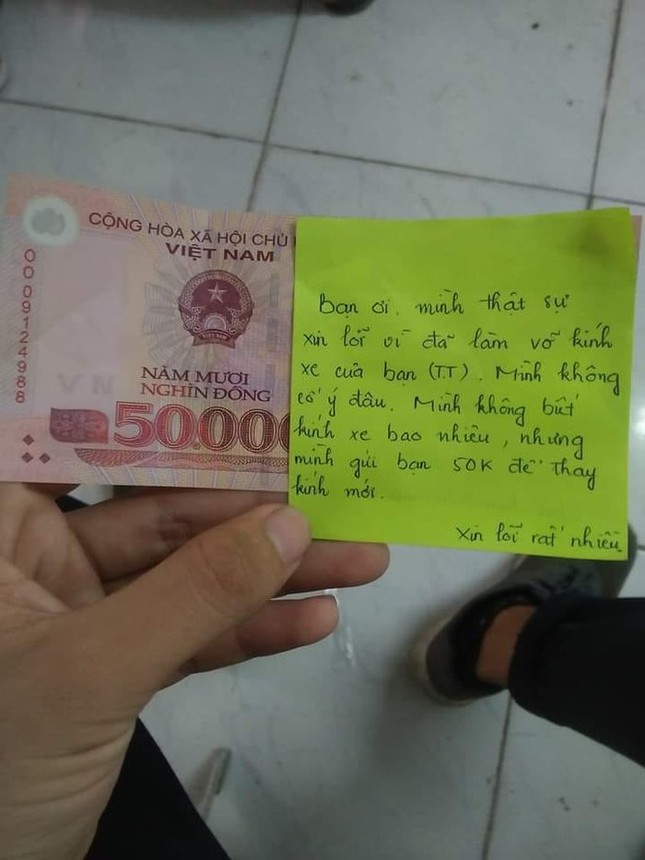 CỘNG HÒA XÃ HỘI CHỦ
VIỆT NAM
0009124988
NĂM MƯƠI
NGHÌN ĐỒNG
50.000
Bạn ơi, mình thật sự
xin lỗi vì đã làm vỡ kính
xe của bạn (T.T). Mình không
cố ý đâu. Mình không biết
kính xe bao nhiêu, nhưng
mình gửi bạn 50K để thay
kính mới.
Xin lỗi rất nhiều.